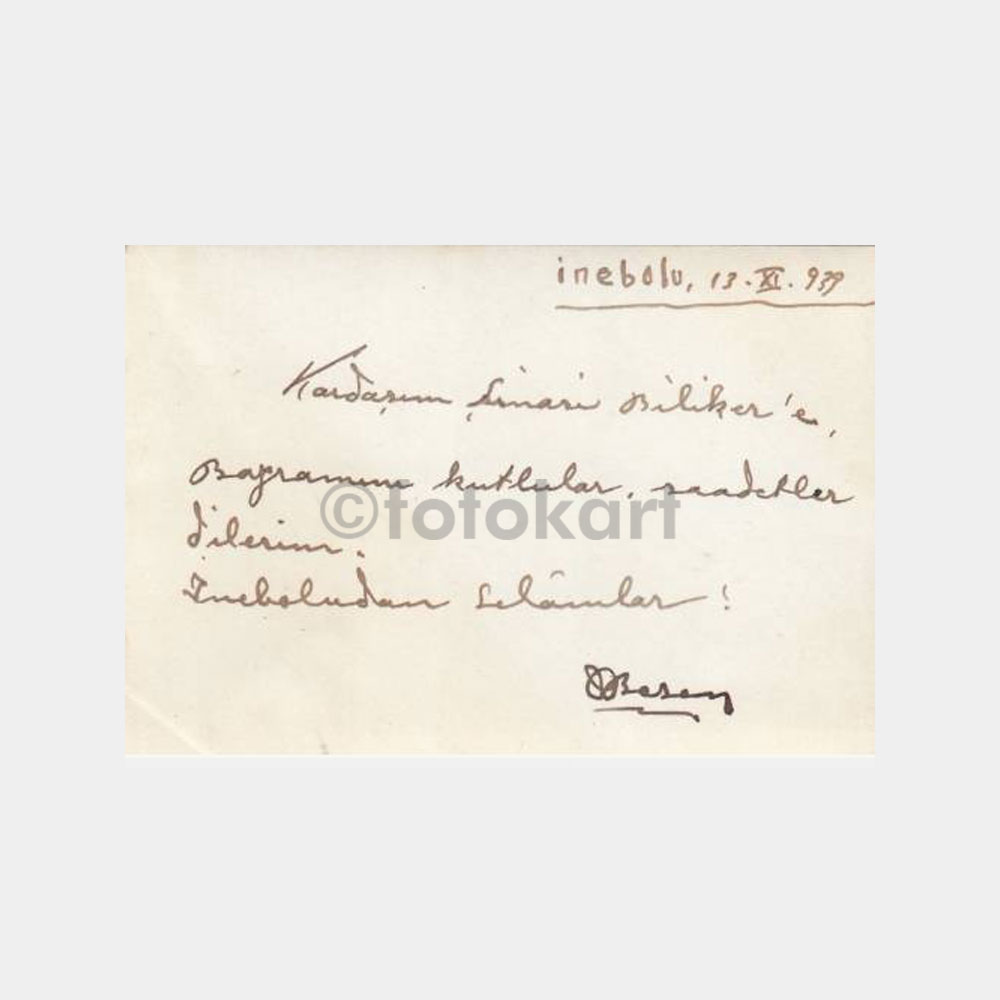 inebolu, 13.XI.939
Kardaşım Şinasi Biliker'e,
Bayramını kutlular, saadetler
dilerim.
İneboludan Selâmlar!
Besen
©fotokart